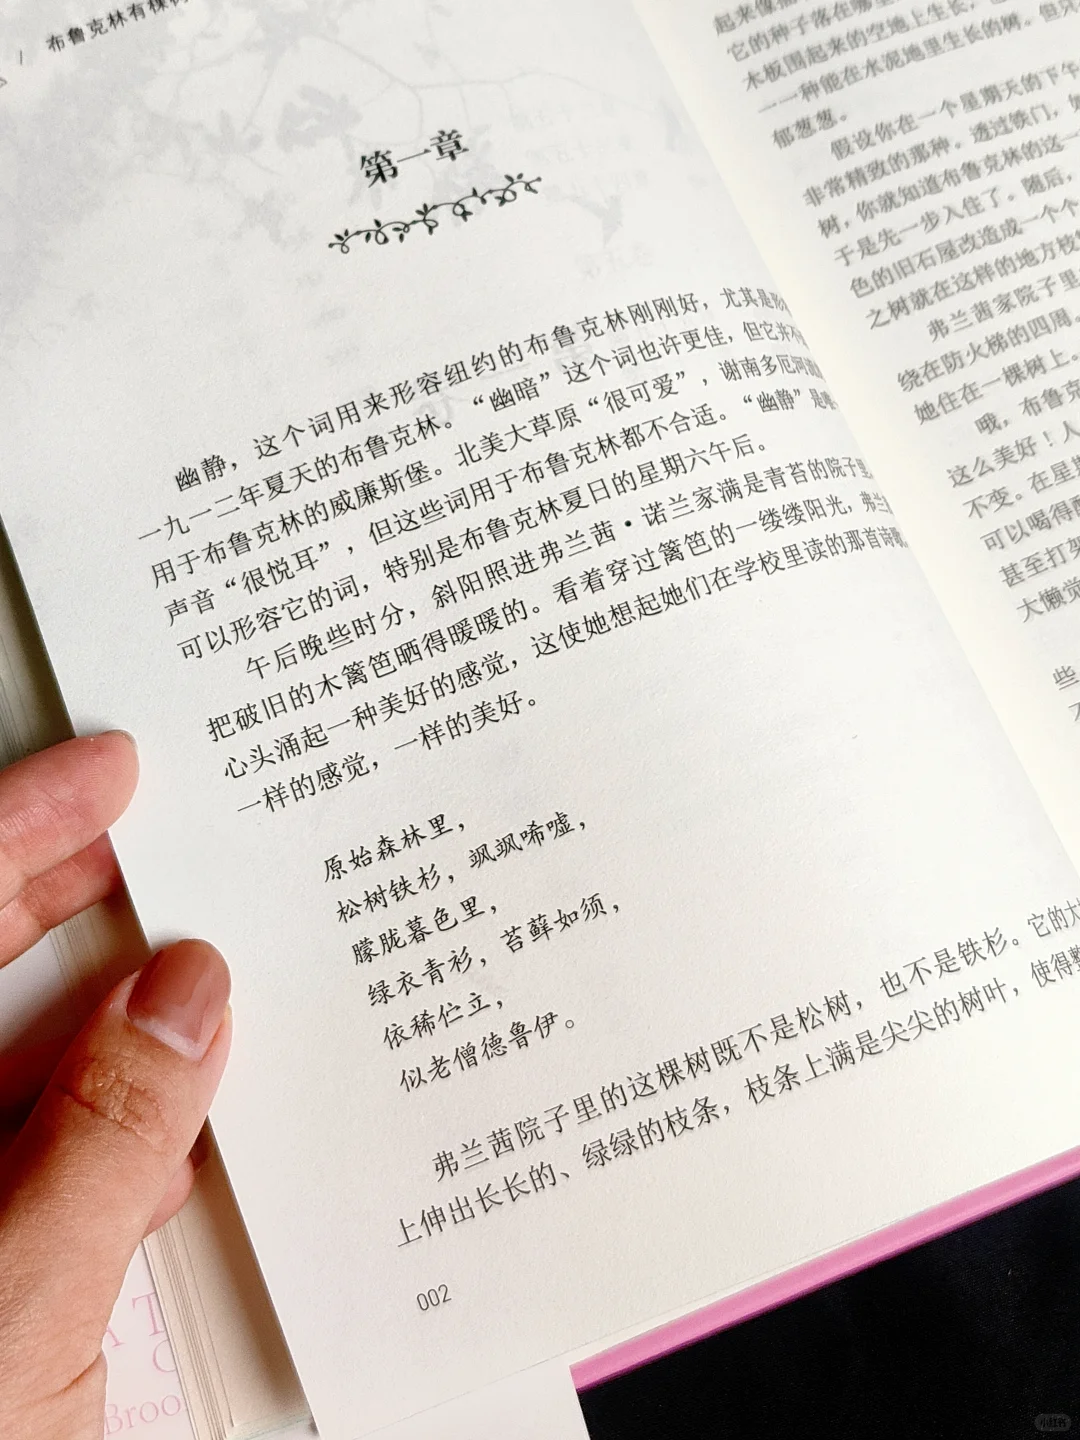 布鲁克林有棵
第一章
幽静，这个词用来形容纽约的布鲁克林刚刚好，尤其是
一九一二年夏天的布鲁克林。“幽暗”这个词也许更佳，但它并不
用于布鲁克林的威廉斯堡。北美大草原“很可爱”，谢南多厄河
声音“很悦耳”，但这些词用于布鲁克林都不合适。“幽静”是
可以形容它的词，特别是布鲁克林夏日的星期六午后。
午后晚些时分，斜阳照进弗兰茜·诺兰家满是青苔的院子里
把破旧的木篱笆晒得暖暖的。看着穿过篱笆的一缕缕阳光，弗兰
心头涌起一种美好的感觉，这使她想起她们在学校里读的那首诗歌
一样的感觉，一样的美好。
原始森林里，
松树铁杉，飒飒唏嘘，
朦胧暮色里，
绿衣青衫，苔藓如须，
依稀伫立，
似老僧德鲁伊。
弗兰茜院子里的这棵树既不是松树，也不是铁杉。它的大
上伸出长长的、绿绿的枝条，枝条上满是尖尖的树叶，使得
002
它的种子落在哪里
木板围起来的空地上生长，
一一种能在水泥地里生长的树。但只
郁葱葱。
假设你在一个星期天的下午
非常精致的那种。透过铁门，
树，你就知道布鲁克林的这一
于是先一步入住了。随后，
色的旧石屋改造成一个个
之树就在这样的地方枝
弗兰茜家院子里
绕在防火梯的四周。
她住在一棵树上。
哦，布鲁克
这么美好！人
不变。在星
可以喝得
甚至打架
大懒觉
些
A T
Broo
小红书